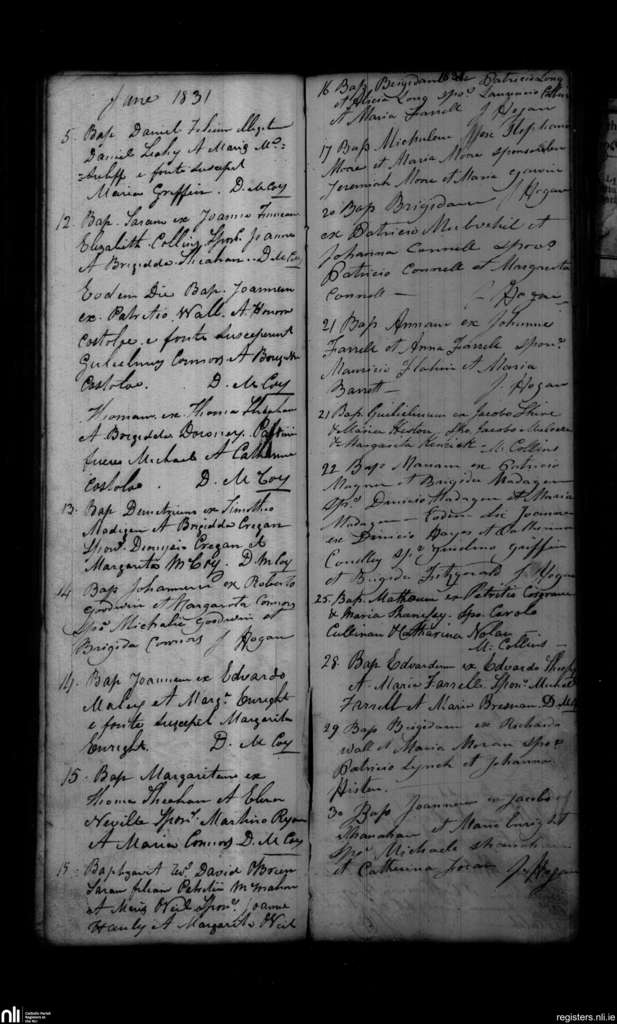 June 1831
5. Bap Daniel filium illegit
Daniel Leahy A Maria Mc
e fonte suscepit
Maria Griffin. D. McCoy
12. Bap. Saram ex Joanne
Elizabeth Collins, Spons. Joanne
A Brigidda Sheahan. D. McCoy
Eodem Die Bap. Joannem
ex. Patritio Wall. A Honora
Costoloe. e fonte susceperunt
Gulielmus Connors A Brigitta
Costoloe. D. McCoy
Thomam. ex. Thoma Sheahan
A Brigidda Doroney. Patrini
fuere Michael A Catherine
Costoloe. D. McCoy
13. Bap Demetrium ex Timotheo
Madigan A Brigidda Cregan
Spons. Dionysio Cregan et
Margarita McCoy. D. McCoy
14 Bap Johannem ex Roberto
Goodwin et Margarita Connors
Spo. Michalie Goodwin et
Brigida Connors J Hogan
14. Bap Joannem ex Edvardo
Maley et Marg. Enright
e fonte suscepit Margarita
Enright. D. McCoy
15. Bap Margaritam ex
Thoma Sheahan A Elena
Neville Spon. Martino Ryan
A Maria Connors D. McCoy
15. Baptizavit Rev. David O'Brien
Saram filiam Patritii McMahon
et Maria O'Neil Spon. Joanne
Hanly et Margarita O'Neil
16 Bap Brigidam ex Patricio Long
et Alicia Long spo. Laurencio Collins
et Maria Farrell J Hogan
17 Bap Michalem Stephano
More et Maria More sponsoribus
Jeremiah More et Maria
J Hogan
20 Bap Brigidam
ex Patricio et
Johanna Connell spons.
Patricio Connell et Margarita
Connell — J Hogan
21 Bap Annam ex Johanne
Farrell et Anna Farrell spon.
Mauricio et Maria
Barrett — J. Hogan
21 Bap. Guilielmum ex Jacobo Shine
& Maria Spo. Jacobo
& Margarita Kenrick — M. Collins
22 Bap Mariam ex Patricio
et Brigida Madagan
spo. Madagan et Maria
Madagan — Eodem die Joannem
ex Hayes et Catherina
Conelley spo. Griffin
et Brigida Fitzgerald J. Hogan
25. Bap. ex Patritio Cosgrave
& Maria Spo. Carolo
Cullinan & Catharina Nolan
M. Collins —
28. Bap Edvardum ex Edvardo
A. Maria Farrell. Spon. Michael
Farrell et Maria Bresnan. D. McCoy
29 Bap Brigidam ex Richardo
Wall et Maria Moran spo.
Patricio Lynch et Johanna
—
30 Bap Joannem ex Jacobo
Shanahan et Maria Enright
spo. Michaele Shanahan
et Catherina J. Hogan
nli
Catholic Parish
Registers at
the NLI
registers.nli.ie